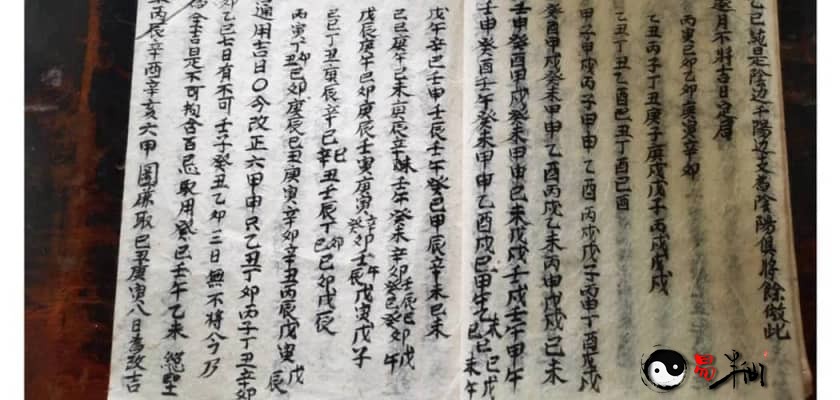 己已純是陰边干陽边支為陰陽俱將餘倣此
逐月不將吉日定局
丙寅己卯乙卯庚寅辛卯
乙丑丙子丁丑庚子庚戌戊子丙戌戊戌
乙丑丁丑乙酉己丑丁酉己酉
甲子甲戌丙子甲申乙酉丙戌戊子丙申丁酉戊戌
癸酉甲戌癸未甲申乙酉丙戌乙未丙申戊戌己未
壬申癸酉甲戌癸未甲申己未戊戌壬戌壬午甲午
壬申癸酉壬午癸未甲申乙酉戌
戊午辛巳壬申壬辰壬午癸巳甲辰辛未己未
己巳庚午己未庚辰辛未壬午癸未辛卯壬辰癸巳
戊辰庚午己卯庚辰壬寅庚寅
己巳丁丑庚辰辛巳辛丑壬辰丁巳己卯戊辰
丙寅丁丑己卯庚辰己丑庚寅辛卯辛丑丙辰戊寅戊辰
通用吉日〇今改正六甲申只乙丑丁卯丙子丁丑辛卯
乙巳七日有不可壬子癸丑乙卯三日無不將今乃
吉是不可拘合百忌取用癸巳壬午乙未
丙辰辛酉辛亥六甲圖蔴取己丑庚寅八日為改吉
易半仙